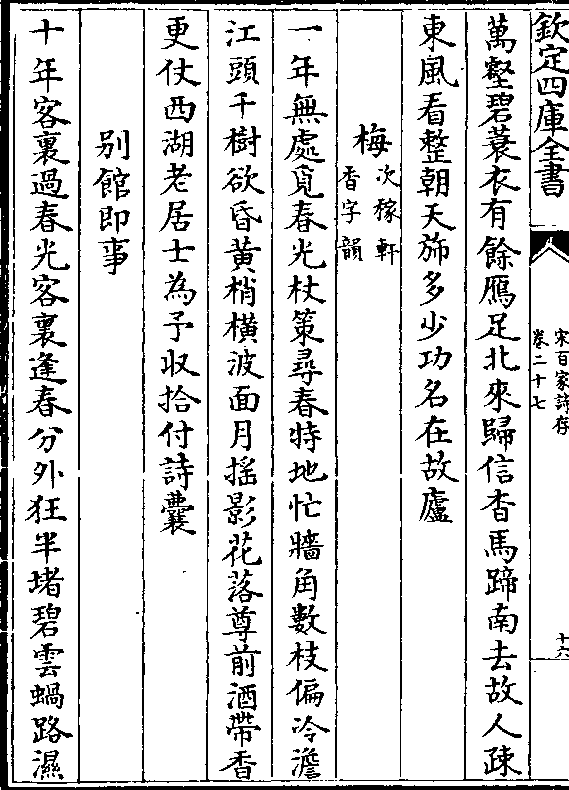 欽定四庫全書
宋百家詩存
卷二十七
十六
萬壑碧蓑衣有餘鴈足北來歸信杳馬蹄南去故人疎
東風看整朝天斾多少功名在故廬
梅次稼軒
香字韻
一年無處覓春光杖策尋春特地忙牆角數枝偏冷澹
江頭千樹欲昏黄梢横波面月揺影花落尊前酒帶香
更仗西湖老居士為予収拾付詩囊
别館即事
十年客裏過春光客裏逢春分外狂半堵碧雲蝸路濕